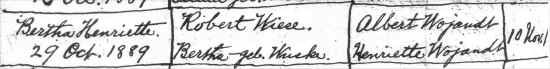 Bertha Henriette. Robert Wiese. Albert Wojandt 10 Nov.
29 Oct. 1889 Bertha geb. Henriette Wojandt